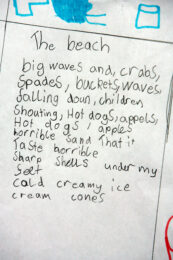 The beach
big waves and, crabs,
Spades, buckets, waves,
falling down, children
Shouting, Hot dogs, appels,
Hot dogs, apples
horrible sand That it
Taste horrible
Sharp Shells under my
feet
Cold creamy ice
cream cones